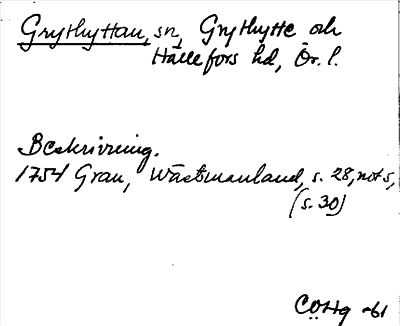 Grythyttan, sn, Grythytte och
Hällefors hd, Ör. l.
Beskrivning.
1754 Grau, Wästmanland, s. 28, not s,
(s. 30)
CÖHg -61